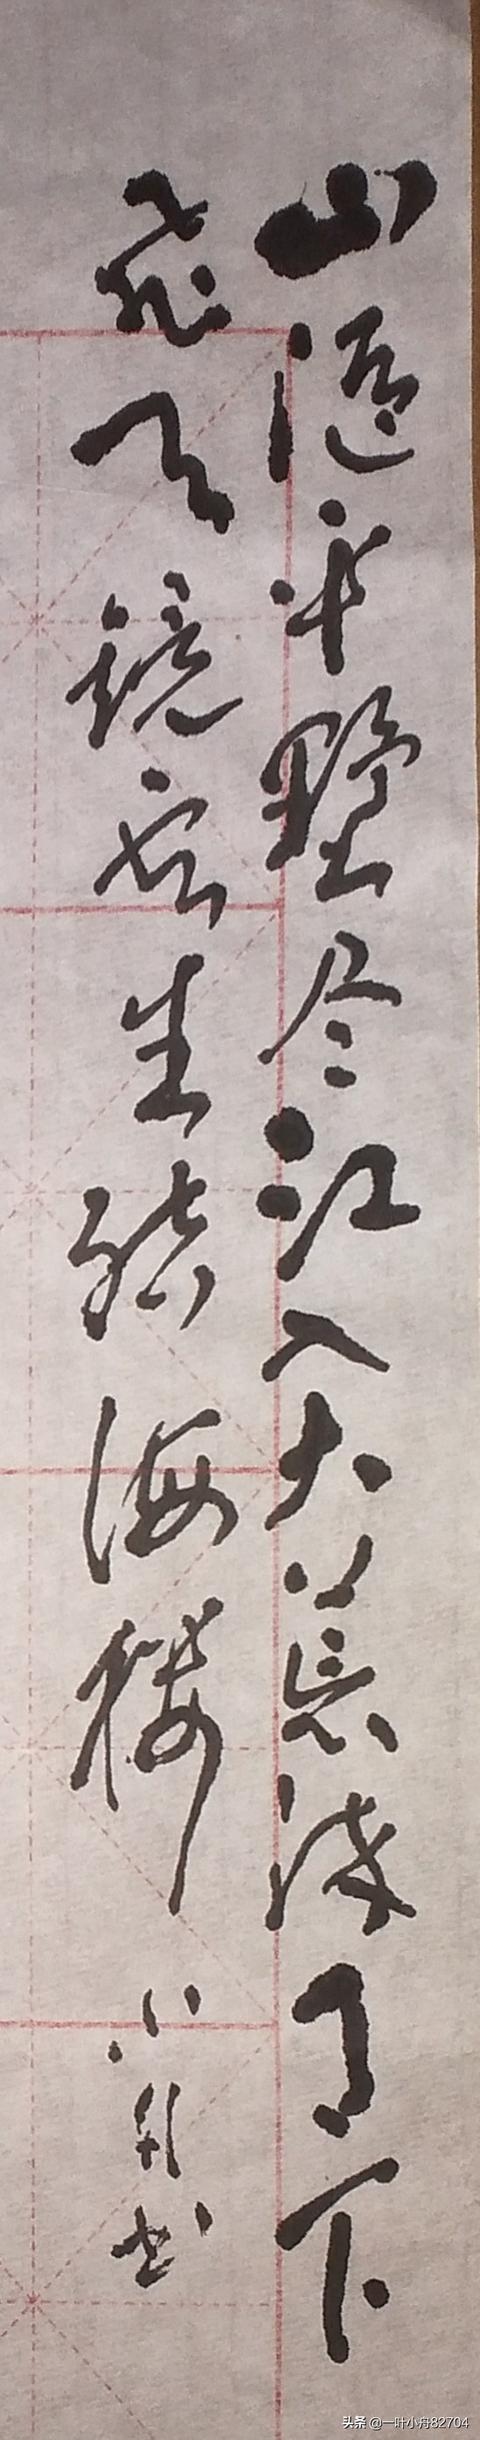 山随平野尽江入大荒流月下
飞天镜云生结海楼
小舟书
头条 @一叶小舟82704